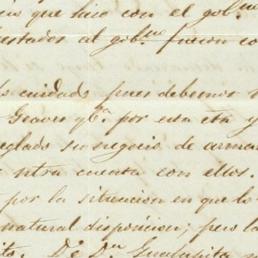 que hizo con el gobno
estados al gobno fueron co
cuidado pues debemos
Graves qe por esta eta y
eglado su negocio de arma
ntra cuenta con ellos.
por la situacion en que lo
natural disposicion; pero la
De Dn Guadalupita